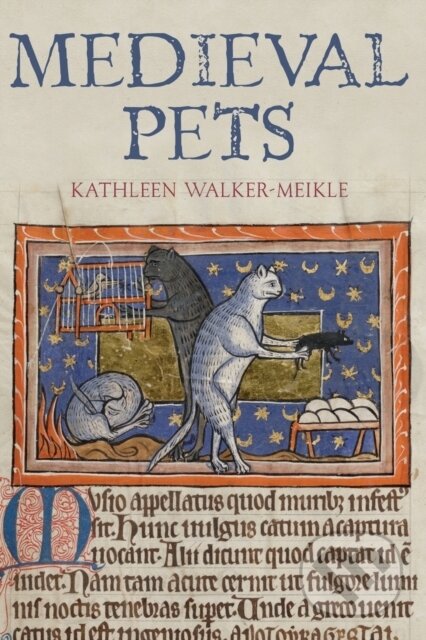 MEDIEVAL
PETS
KATHLEEN WALKER-MEIKLE
Musio appellatus quod muribꝫ infestꝰ
sit. Hunc uulgus catum a captura
uocant. Alii dicunt quod captat id ē
uidet. Nam tam acute cernit ut fulgore lumi
nis noctis tenebras supet. Unde a greco uenit
catus id est ingeniosus.